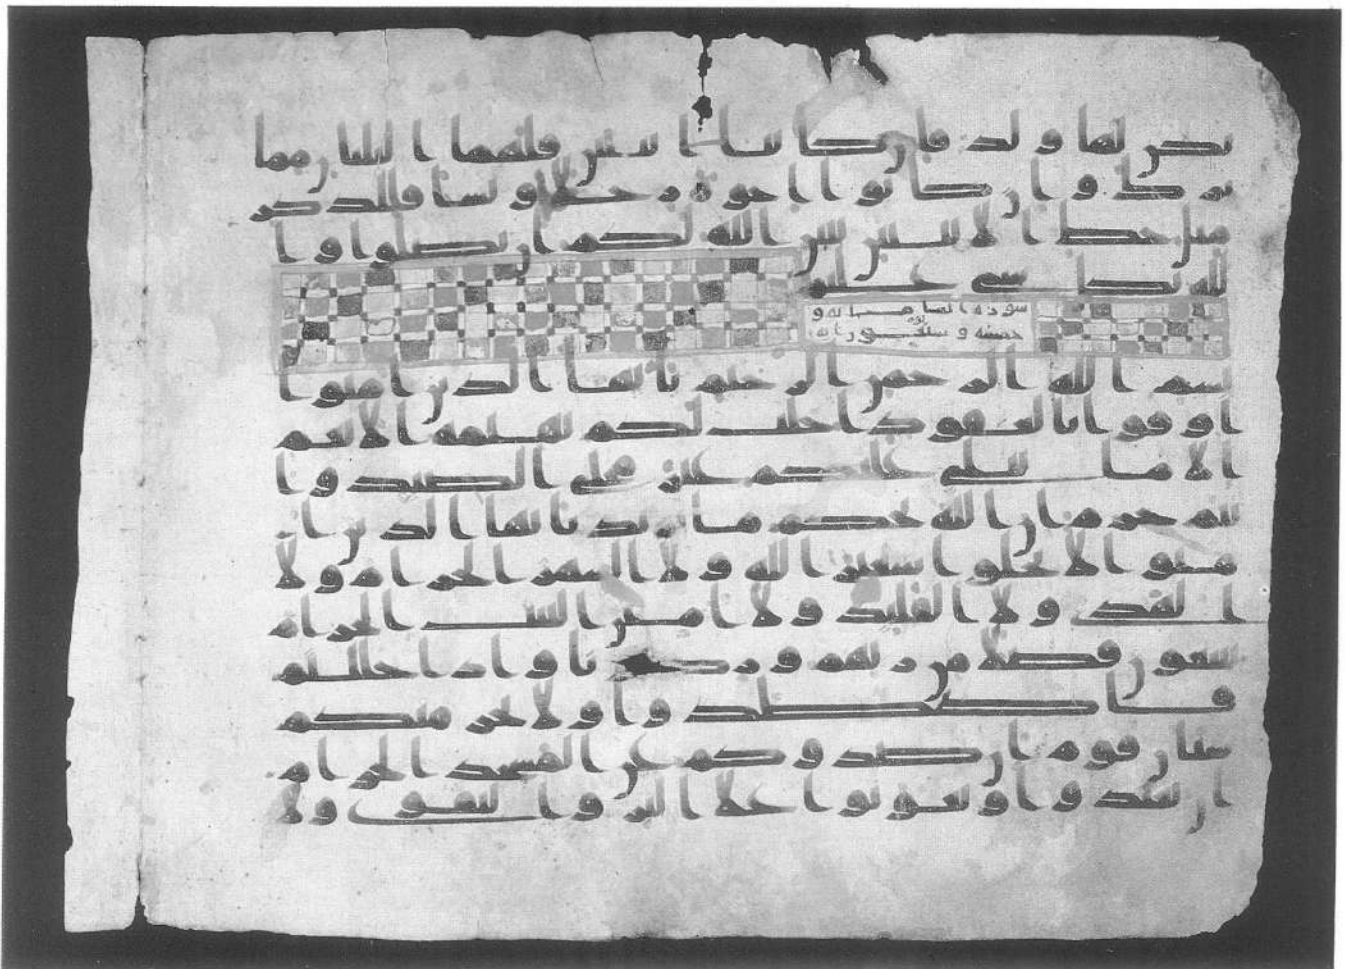 يكن لها ولد فان كانتا اثنتين فلهما الثلثان مما
ترك وان كانوا اخوة رجالا ونسا فللذكر
مثل حظ الانثيين يبين الله لكم ان تضلوا وا
لله بكل شى عليم
سورة النسا مائة و
خمسة وسبعون اية
بسم الله الرحمن الرحيم يايها الذين امنوا
اوفوا بالعقود احلت لكم بهيمة الانعم
الا ما يتلى عليكم غير محلى الصيد وا
نتم حرم ان الله يحكم ما يريد يايها الذين ا
منوا لا تحلوا شعير الله ولا الشهر الحرام ولا
الهدى ولا القليد ولا امين البيت الحرام
يبتغون فضلا من ربهم ورضونا واذا حللتم
فاصطدوا ولا يجرمنكم
شنان قوم ان صدوكم عن المسجد الحرام
ان تعتدوا وتعونوا علا البر والتقوى ولا